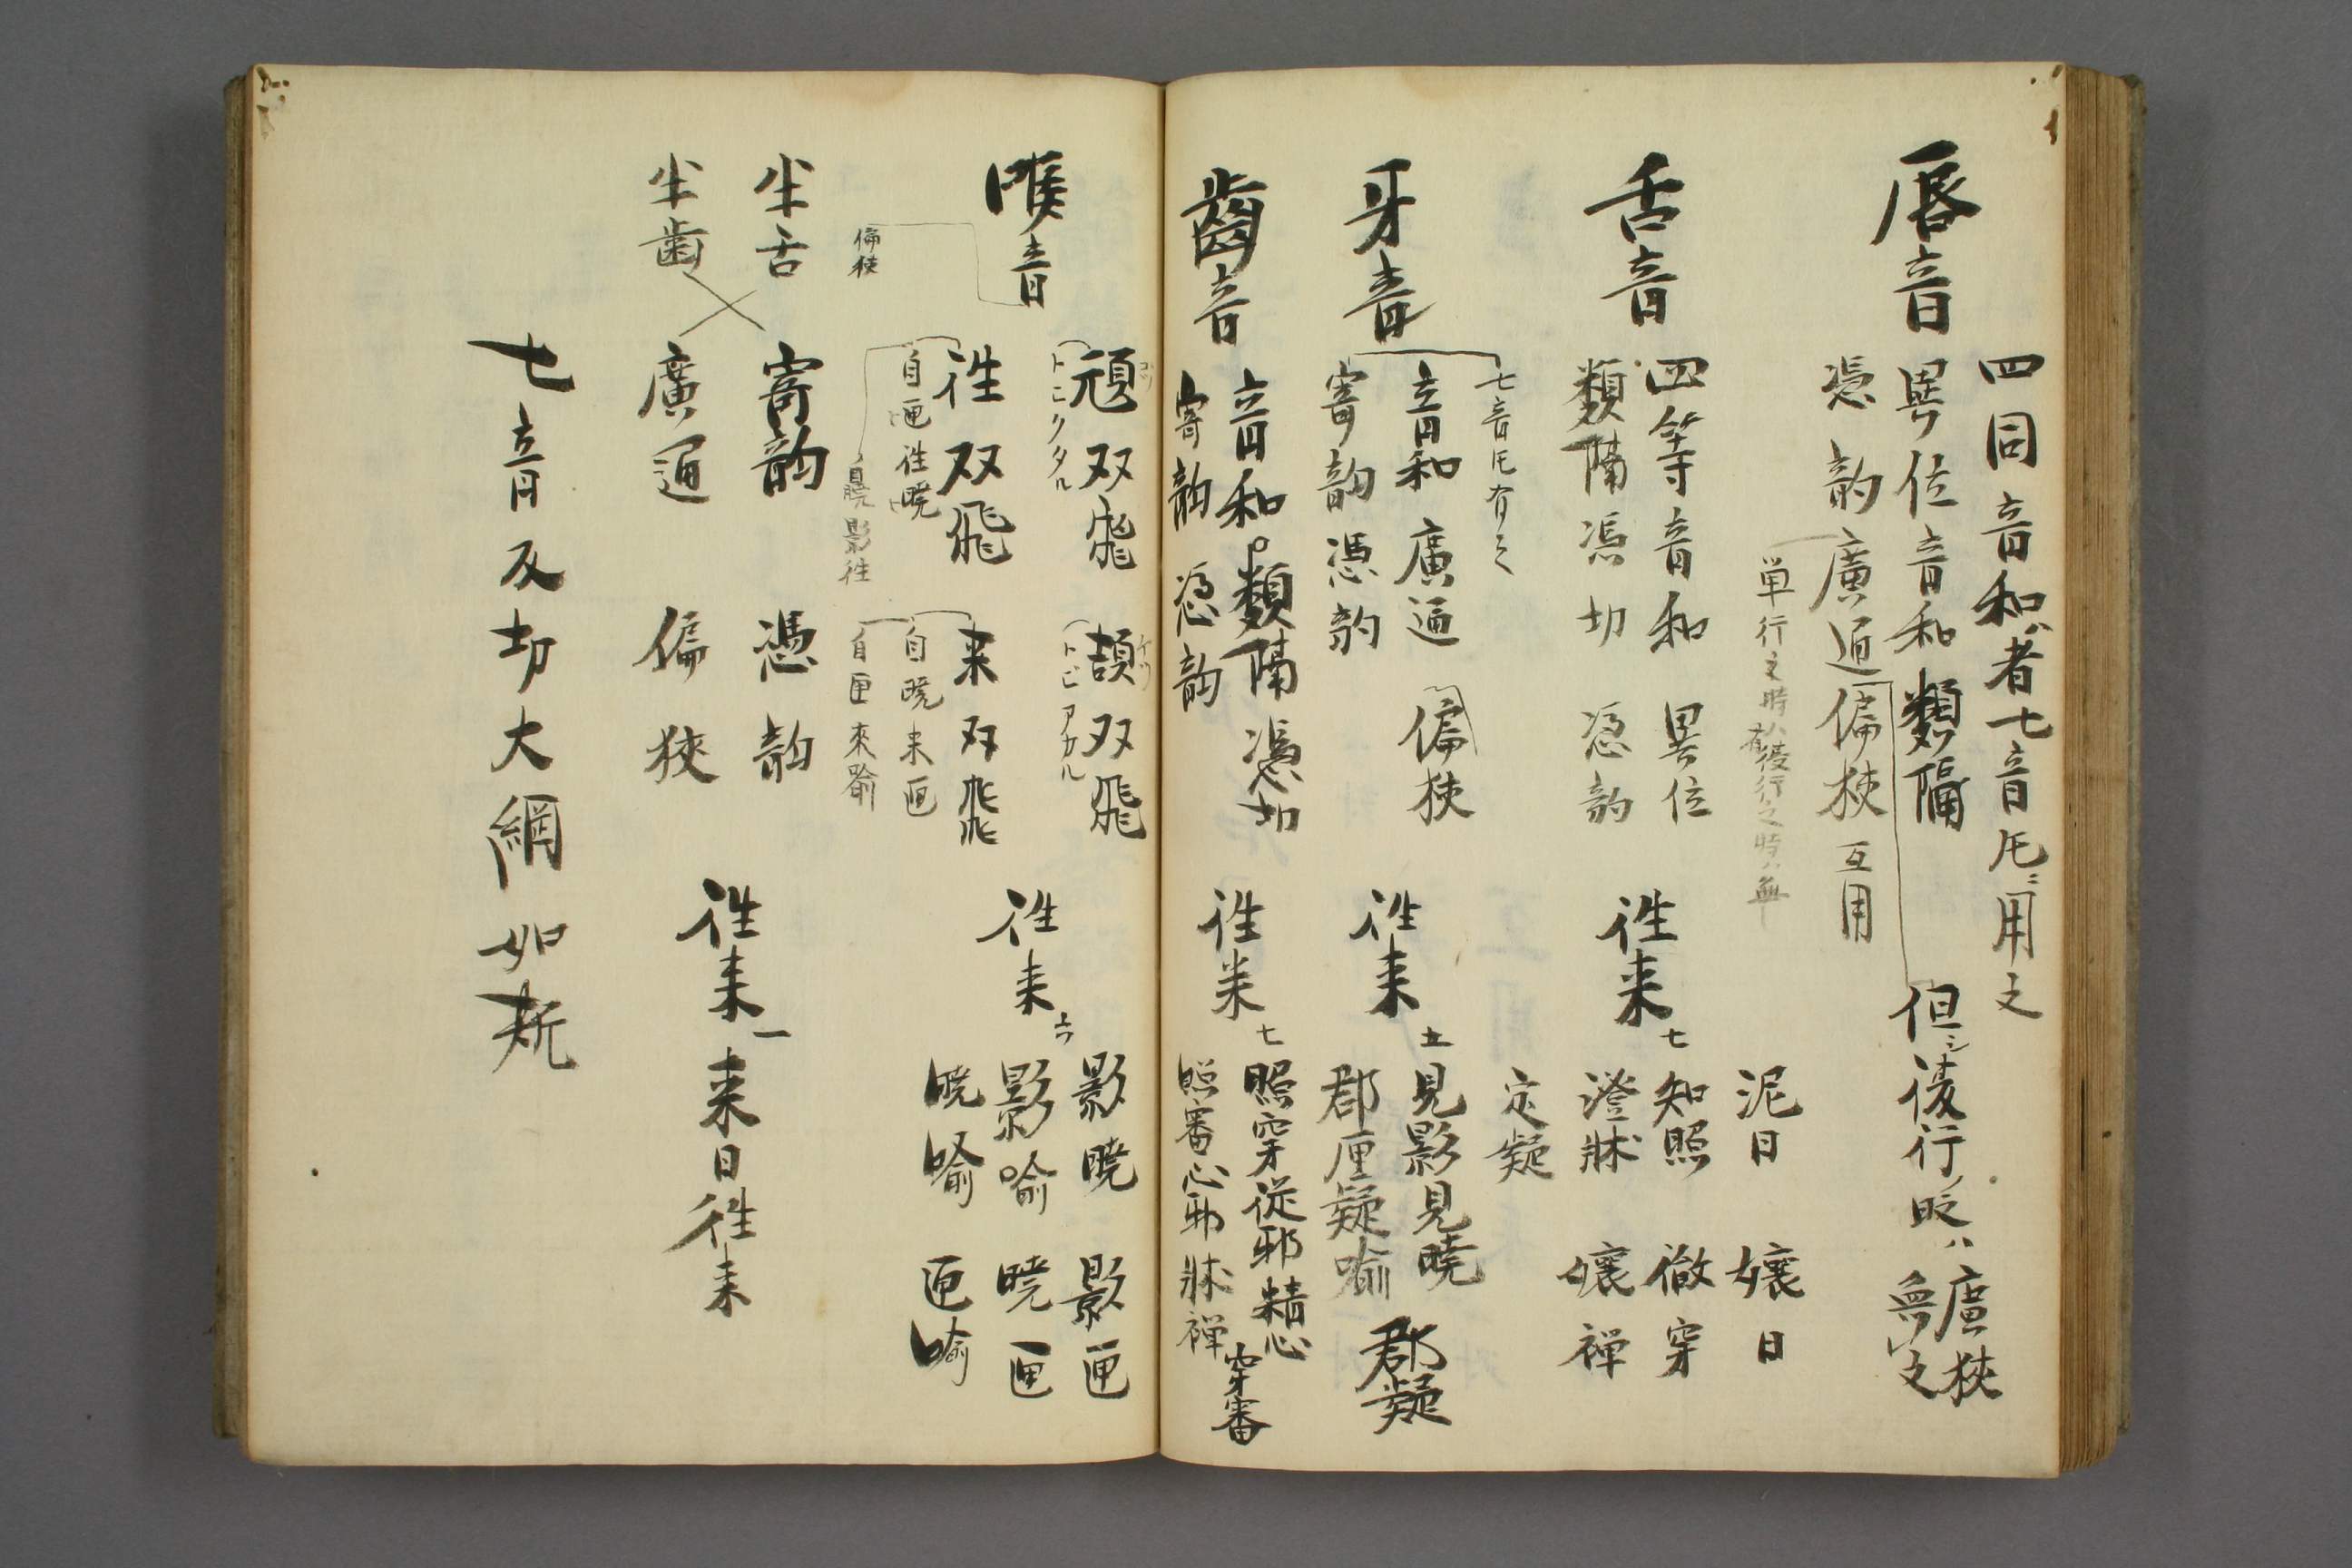 四同音和者七音𪜈ニ用之
唇音
異位音和 類隔
但シ後行ノ時ハ廣狹無之
憑韵 廣通 偏狹 互用
単行之時ハ有 後行之時ハ無
舌音
四等音和 異位
類隔 憑切 憑韵
往来 七
泥日 嬢日
知照 徹穿
澄牀 嬢禅
定疑
牙音
七音𪜈有之
音和 廣通 偏狹
寄韵 憑韵
往来 五
見影 見暁
郡匣 疑喻 郡疑
齒音
音和 類隔 憑切
寄韵 憑韵
往来 七
照穿 従邪 精心
照審 心邪 牀禅 穿審
喉音
頏双飛 頡双飛
トヒクタル トヒアカル
往双飛 来双飛
自匣往暁 自暁来匣
自暁影往 自匣來喻
偏狭
往来 六
影暁 影匣
影喻 暁匣
暁喻 匣喻
半舌 寄韵 憑韵
半歯 廣通 偏狹
往来一 来日往来
七音反切大綱如斯